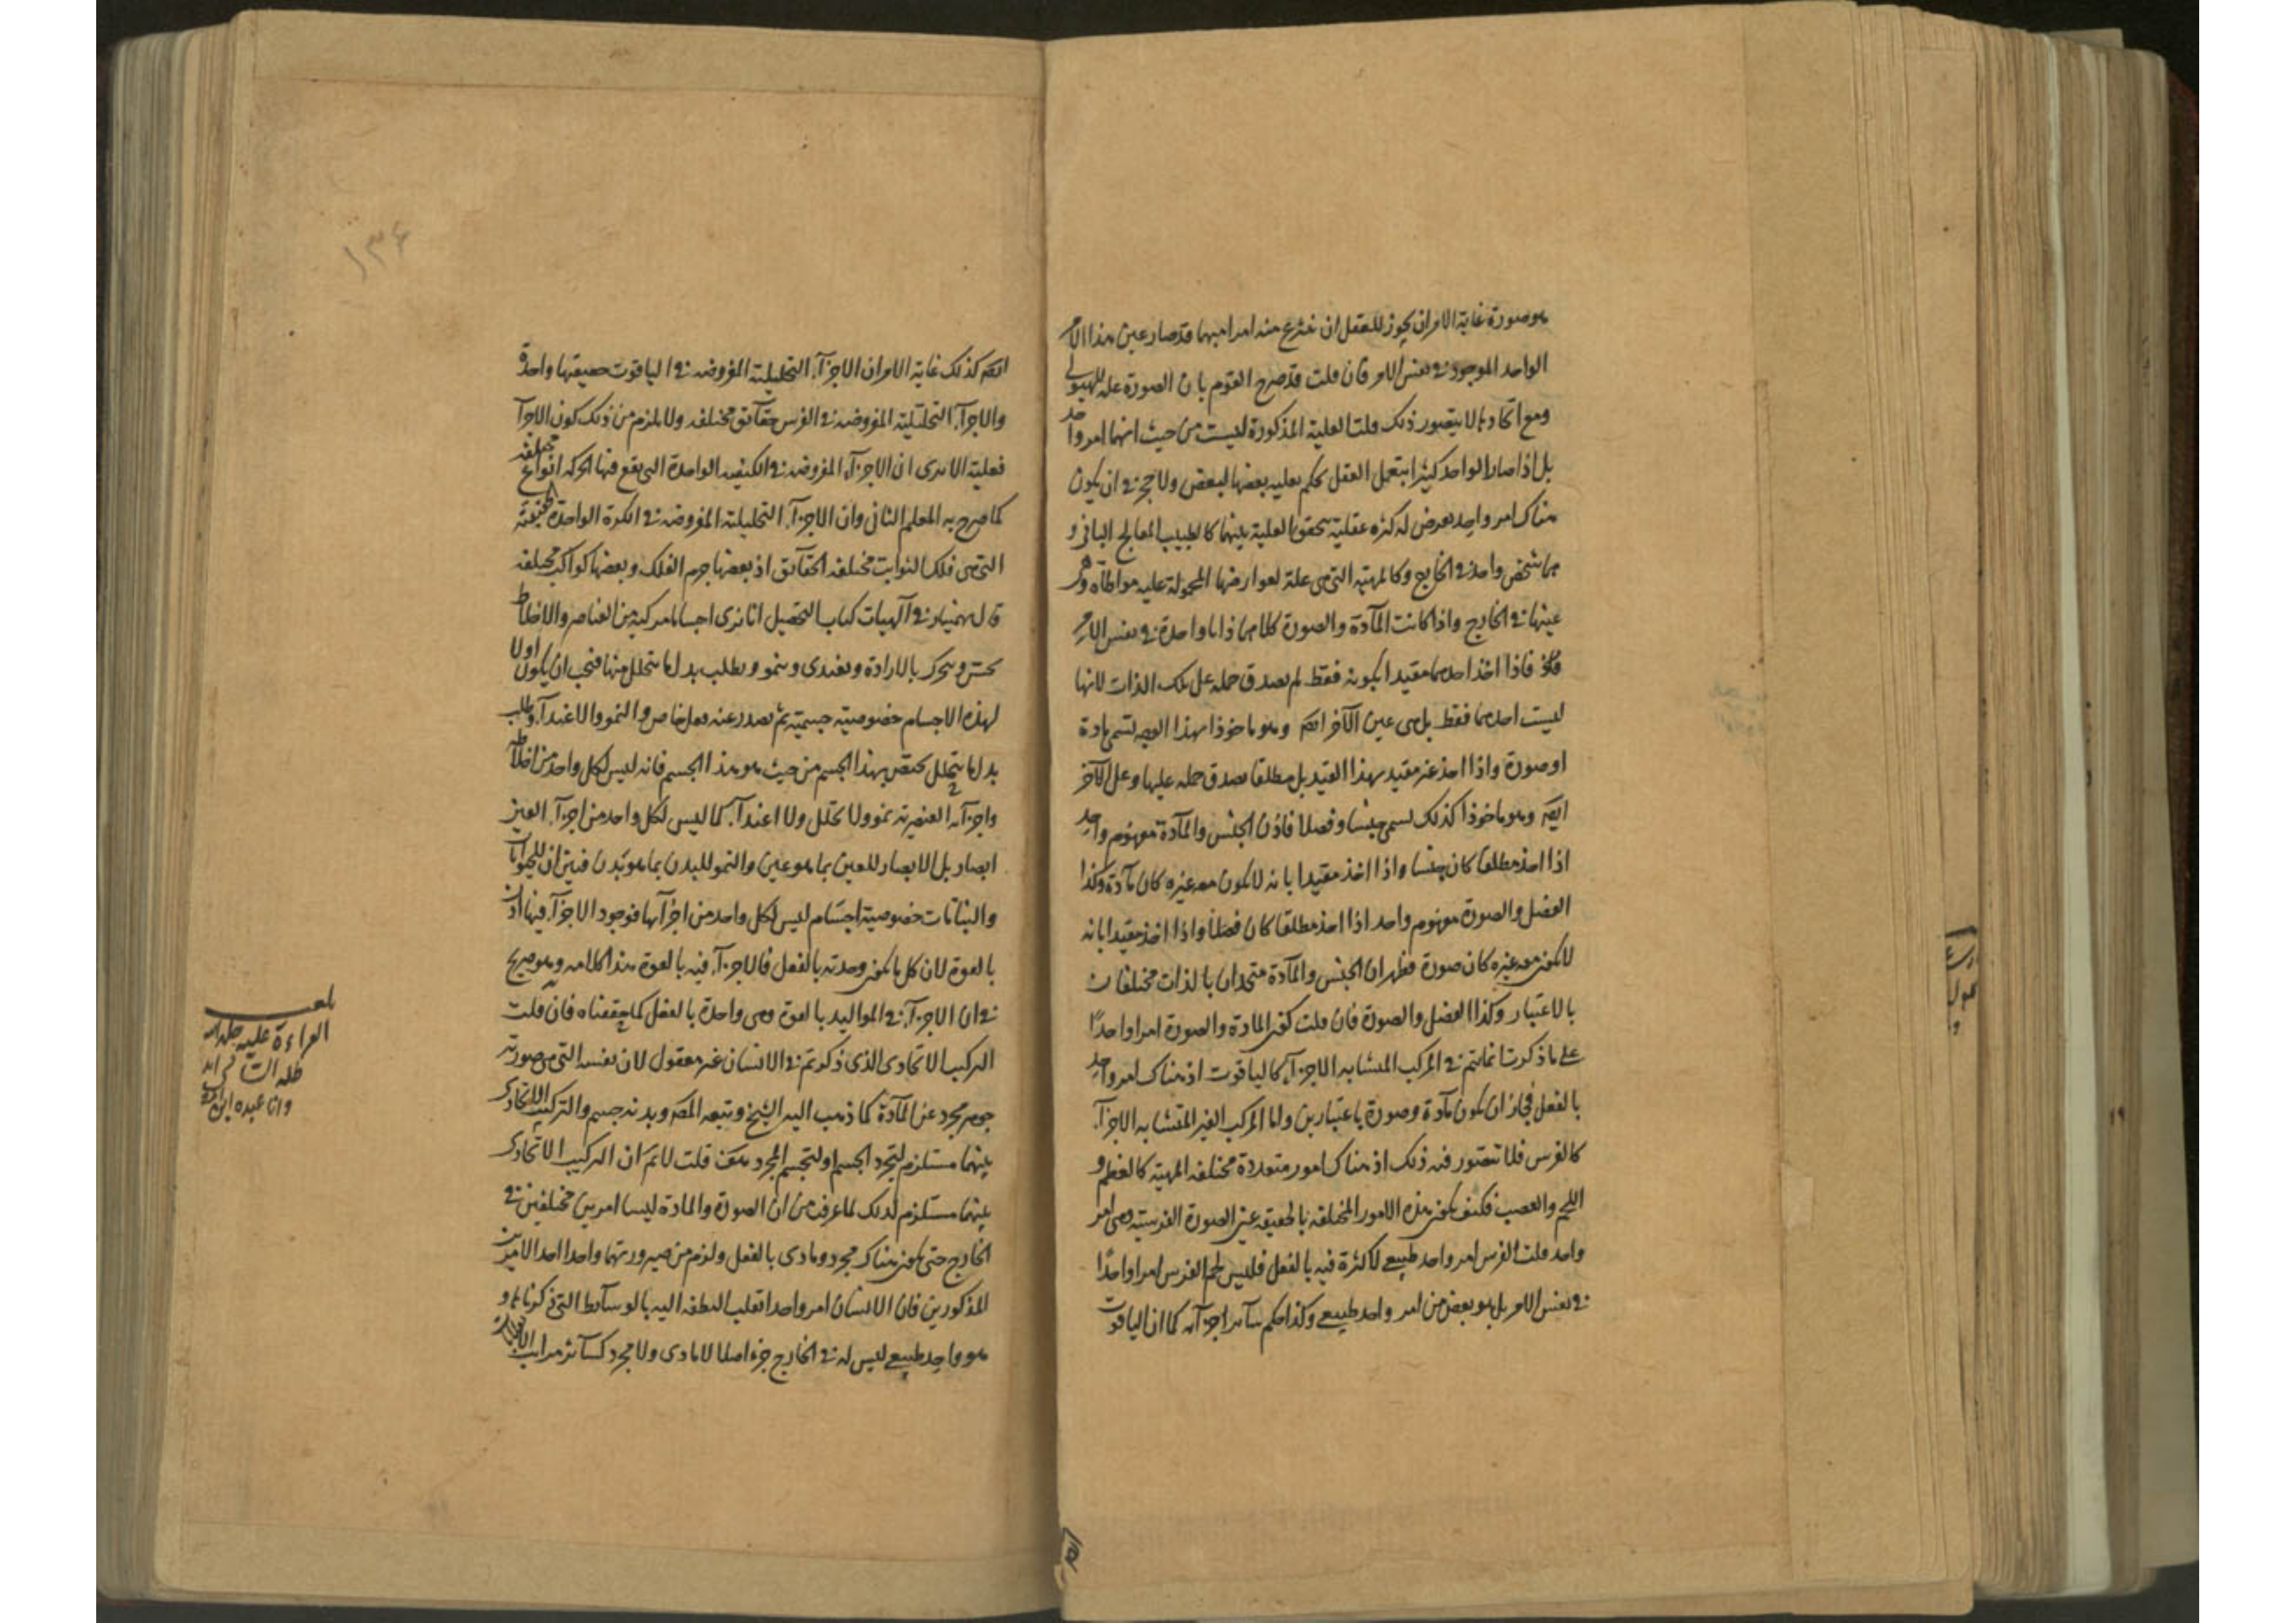 هو صورة غاية الامر ان يجوز للعقل ان ينتزع منه امرا مبهما قد صار عين هذا الامر
الواحد الموجود في نفس الامر فان قلت قد صرح القوم بان الصورة علة للهيولى
ومع اتحادهما لا يتصور ذلك قلت العلية المذكورة ليست من حيث انهما امر واحد
بل اذا صار الواحد كثيرا بتعمل العقل يحكم بعلية بعضها لبعض ولا حجر في ان يكون
هناك امر واحد يعرض له كثرة عقلية يتحقق العلية بينهما كالطبيب المعالج
شخص واحد في الخارج وكالمهية التي هي علة لعوارضها المحمولة عليه مواطاة وهي
عينها في الخارج واذا كانت المآدة والصورة كلاهما ذاتا واحدة في نفس الامر
فاذا اخذ احدهما مقيدا بكونه فقط لم يصدق حمله على تلك الذات لانها
ليست احدهما فقط بل هى عين الآخر ايضم وهو ماخوذا بهذا الوجه تسمى مادة
او صورة واذا اخذ غير مقيد بهذا القيد بل مطلقا يصدق حمله عليها وعلى الآخر
ايضم وهو ماخوذا كذلك يسمى جنسا وفصلا فاذن الجنس والمآدة مفهوم واحد
اذا اخذ مطلقا كان جنسا واذا اخذ مقيدا بانه لا يكون معه غيره كان مآدة وكذا
الفصل والصورة مفهوم واحد اذا اخذ مطلقا كان فصلا واذا اخذ مقيدا بانه
لا يكون معه غيره كان صورة فظهر ان الجنس والمآدة متحدان بالذات مختلفان
بالاعتبار وكذا الفصل والصورة فان قلت كون المادة والصورة امرا واحدًا
على ما ذكرت انما يتم في المركب المتشابه الاجزآء كالياقوت اذ هناك امر واحد
بالفعل فجاز ان يكون مآدة وصورة باعتبارين واما المركب الغير المتشابه الاجزآء
كالفرس فلا يتصور فيه ذلك اذ هناك امور متعددة مختلفة المهية كالعظم و
اللحم والعصب فكيف يكون هذه الامور المختلفة بالحقيقة عين الصورة الفرسية وهى امر
واحد قلت الفرس امر واحد طبيعي لا كثرة فيه بالفعل فليس لحم الفرس امرا واحدًا
في نفس الامر بل هو بعض من امر واحد طبيعي وكذا حكم سآئر اجزآئه كما ان الياقوت
ايضم كذلك غاية الامر ان الاجزآء التحليلية المفروضة في الياقوت حقيقتها واحدة
والاجزآء التحليلية المفروضة في الفرس حقآئق مختلفة ولا يلزم من ذلك كون الاجزآء
فعلية الا ترى ان الاجزآء المفروضة في الكيفية الواحدة التي يقع فيها الحركة انواع مختلفة
كما صرح به المعلم الثاني وان الاجزآء التحليلية المفروضة في الكرة الواحدة
التي هي فلك الثوابت مختلفة الحقآئق اذ بعضها جرم الفلك وبعضها كواكب مختلفة
قال بهمنيار في آلهيات كتاب التحصيل انا نرى اجساما مركبة من العناصر والاخلاط
تحس وتتحرك بالارادة وتغتذي وتنمو ويطلب بدل ما يتحلل منها فيجب ان يكون اولا
لهذه الاجسام خصوصية جسمية ثم يصدر عنه فعل خاص والنمو والاغتذآء وطلب
بدل ما يتحلل يختص بهذا الجسم من حيث هو هذا الجسم فانه ليس لكل واحد من اخلاطه
واجزآئه العنصرية نمو ولا تحلل ولا اغتذآء كما ليس لكل واحد من اجزآء العين
ابصار بل الابصار للعين بما هو عين والنمو للبدن بما هو بدن فبين ان للحيوانات
والنباتات خصوصية اجسام ليس لكل واحد من اجزآئها فوجود الاجزآء فيها اذن
بالقوة لان كل ما يكون وحدته بالفعل فالاجزآء فيه بالقوة هذا كلامه وهو صريح
في ان الاجزآء في المواليد بالقوة وهى واحدة بالفعل كما حققناه فان قلت
التركيب الاتحادي الذي ذكرتم في الانسان غير معقول لان نفسه التي هي صورته
جوهر مجرد عن المآدة كما ذهب اليه الشيخ وتبعه المصم وبدنه جسم والتركيب الاتحادي
بينهما مستلزم لتجرد الجسم او لتجسم المجرد قلت لانم ان التركيب الاتحادي
بينهما مستلزم لذلك لما عرفت من ان الصورة والمادة ليسا امرين مختلفين في
الخارج حتى يكون هناك مجرد ومادي بالفعل ولزم من صيرورتهما واحدا احد الامرين
المذكورين فان الانسان امر واحد انقلب النطفة اليه بالوسآئط التي ذكرناها و
هو واحد طبيعي ليس له في الخارج جزء اصلا لا مادي ولا مجرد كسآئر مراتب
بلغ
القراءة عليه
١٣٦